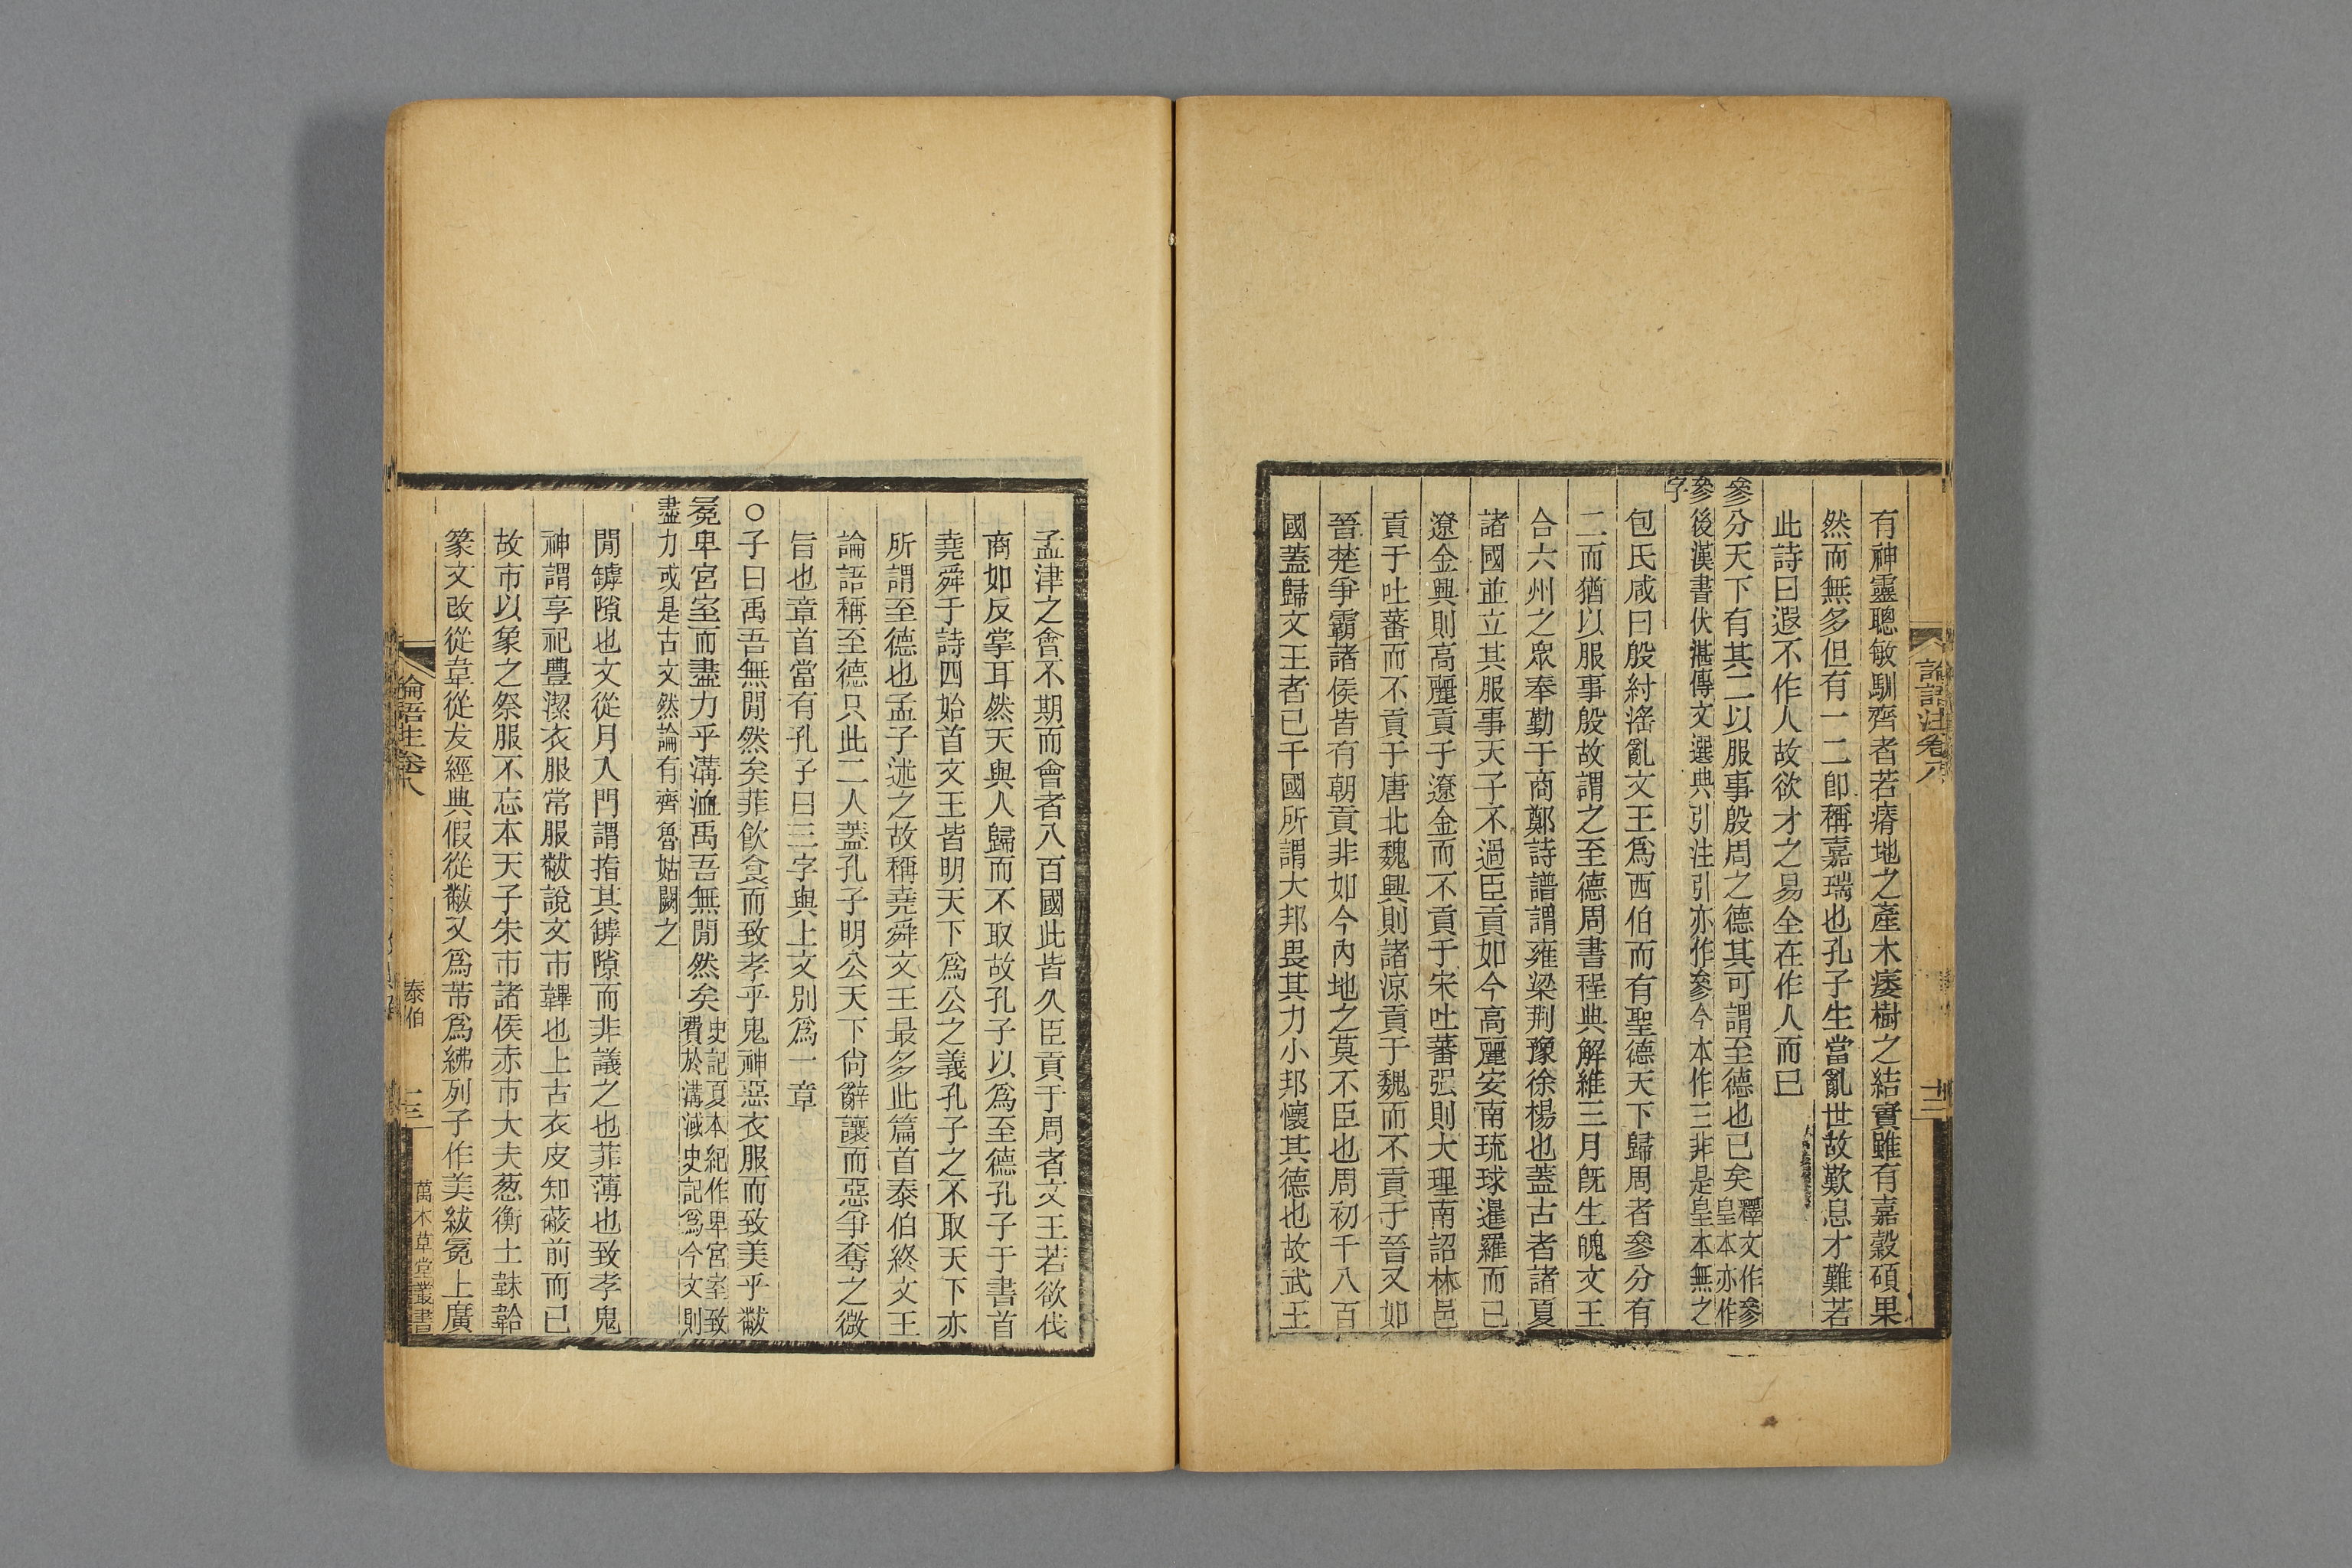 論語注卷八
十二
有神靈聰敏馴齊者若瘠地之產木痿樹之結實雖有嘉穀碩果
然而無多但有一二卽稱嘉瑞也孔子生當亂世故歎息才難若
此詩曰遐不作人故欲才之易全在作人而已
參分天下有其二以服事殷周之德其可謂至德也已矣釋文作參
皇本亦作
參後漢書伏湛傳文選典引注引亦作參今本作三非是皇本無之
字
包氏咸曰殷紂滛亂文王爲西伯而有聖德天下歸周者參分有
二而猶以服事殷故謂之至德周書程典解維三月旣生魄文王
合六州之眾奉勤于商鄭詩譜謂雍梁荆豫徐楊也蓋古者諸夏
諸國並立其服事天子不過臣貢如今高麗安南琉球暹羅而已
遼金興則高麗貢于遼金而不貢于宋吐蕃强則大理南詔林邑
貢于吐蕃而不貢于唐北魏興則諸凉貢于魏而不貢于晉又如
晉楚爭霸諸侯皆有朝貢非如今內地之莫不臣也周初千八百
國蓋歸文王者已千國所謂大邦畏其力小邦懷其德也故武王
孟津之會不期而會者八百國此皆久臣貢于周者文王若欲伐
商如反掌耳然天與人歸而不取故孔子以爲至德孔子于書首
堯舜于詩四始首文王皆明天下爲公之義孔子之不取天下亦
所謂至德也孟子述之故稱堯舜文王最多此篇首泰伯終文王
論語稱至德只此二人蓋孔子明公天下尙辭讓而惡爭奪之微
旨也章首當有孔子曰三字與上文別爲一章
○子曰禹吾無閒然矣菲飲食而致孝乎鬼神惡衣服而致美乎黻
冕卑宮室而盡力乎溝洫禹吾無閒然矣史記夏本紀作卑宮室致
費於溝減史記爲今文則
盡力或是古文然論有齊魯姑闕之
閒罅隙也文從月入門謂指其罅隙而非議之也菲薄也致孝鬼
神謂享祀豐潔衣服常服黻說文巿韠也上古衣皮知蔽前而已
故巿以象之祭服不忘本天子朱巿諸侯赤巿大夫葱衡士韎韐
篆文改從韋從犮經典假從黻又爲芾爲紼列子作美紱冕上廣
論語注卷八
泰伯
十三
萬木草堂叢書